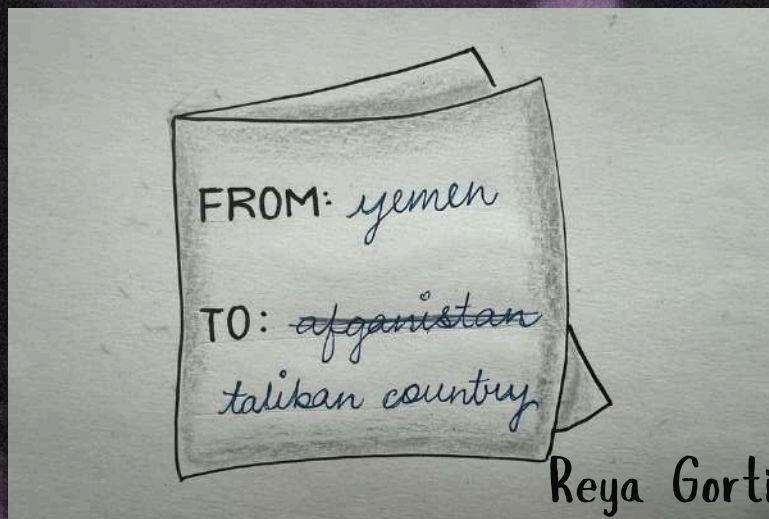 FROM: yemen
TO: afganistan
taliban country
Reya Gorti